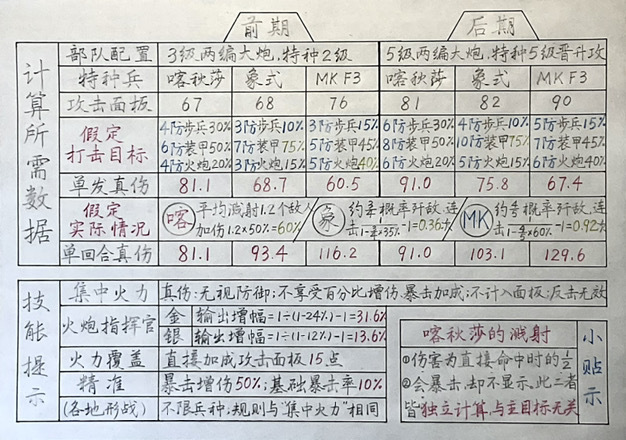 前期 后期
计算所需数据
部队配置 3级两编大炮,特种2级 5级两编大炮,特种5级晋升攻
特种兵 喀秋莎 象式 MK F3 喀秋莎 象式 MK F3
攻击面板 67 68 76 81 82 90
假定打击目标
4防步兵30% 3防步兵10% 3防步兵15% 6防步兵30% 4防步兵10% 5防步兵15%
6防装甲50% 7防装甲75% 5防装甲45% 8防装甲50% 10防装甲75% 7防装甲45%
4防火炮20% 3防火炮15% 5防火炮40% 5防火炮20% 5防火炮15% 6防火炮40%
单发真伤 81.1 68.7 60.5 91.0 75.8 67.4
假定实际情况
喀 平均溅射1.2个敌人 加伤1.2×50%=60%
象 约 概率歼敌,连击 -1=0.36
MK 约 概率歼敌,连击 -1=0.92
单回合真伤 81.1 93.4 116.2 91.0 103.1 129.6
技能提示
集中火力 真伤:无视防御;不享受百分比增伤、暴击加成;不计入面板;反击无效
火炮指挥官
金 输出增幅=1÷(1-24%)-1=31.6%
银 输出增幅=1÷(1-12%)-1=13.6%
火力覆盖 直接加成攻击面板15点
精准 暴击增伤50%;基础暴击率10%
(各地形战) 不限兵种;规则与"集中火力"相同
小贴示
喀秋莎的溅射
①伤害为直接命中时的1/2
②会暴击,却不显示,此二者
皆"独立计算,与主目标无关